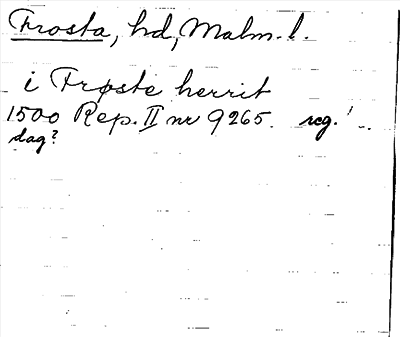 Frosta, hd, Malm. l.
i Frøste herrit
1500 Rep. II nr 9265. reg.!
dag?